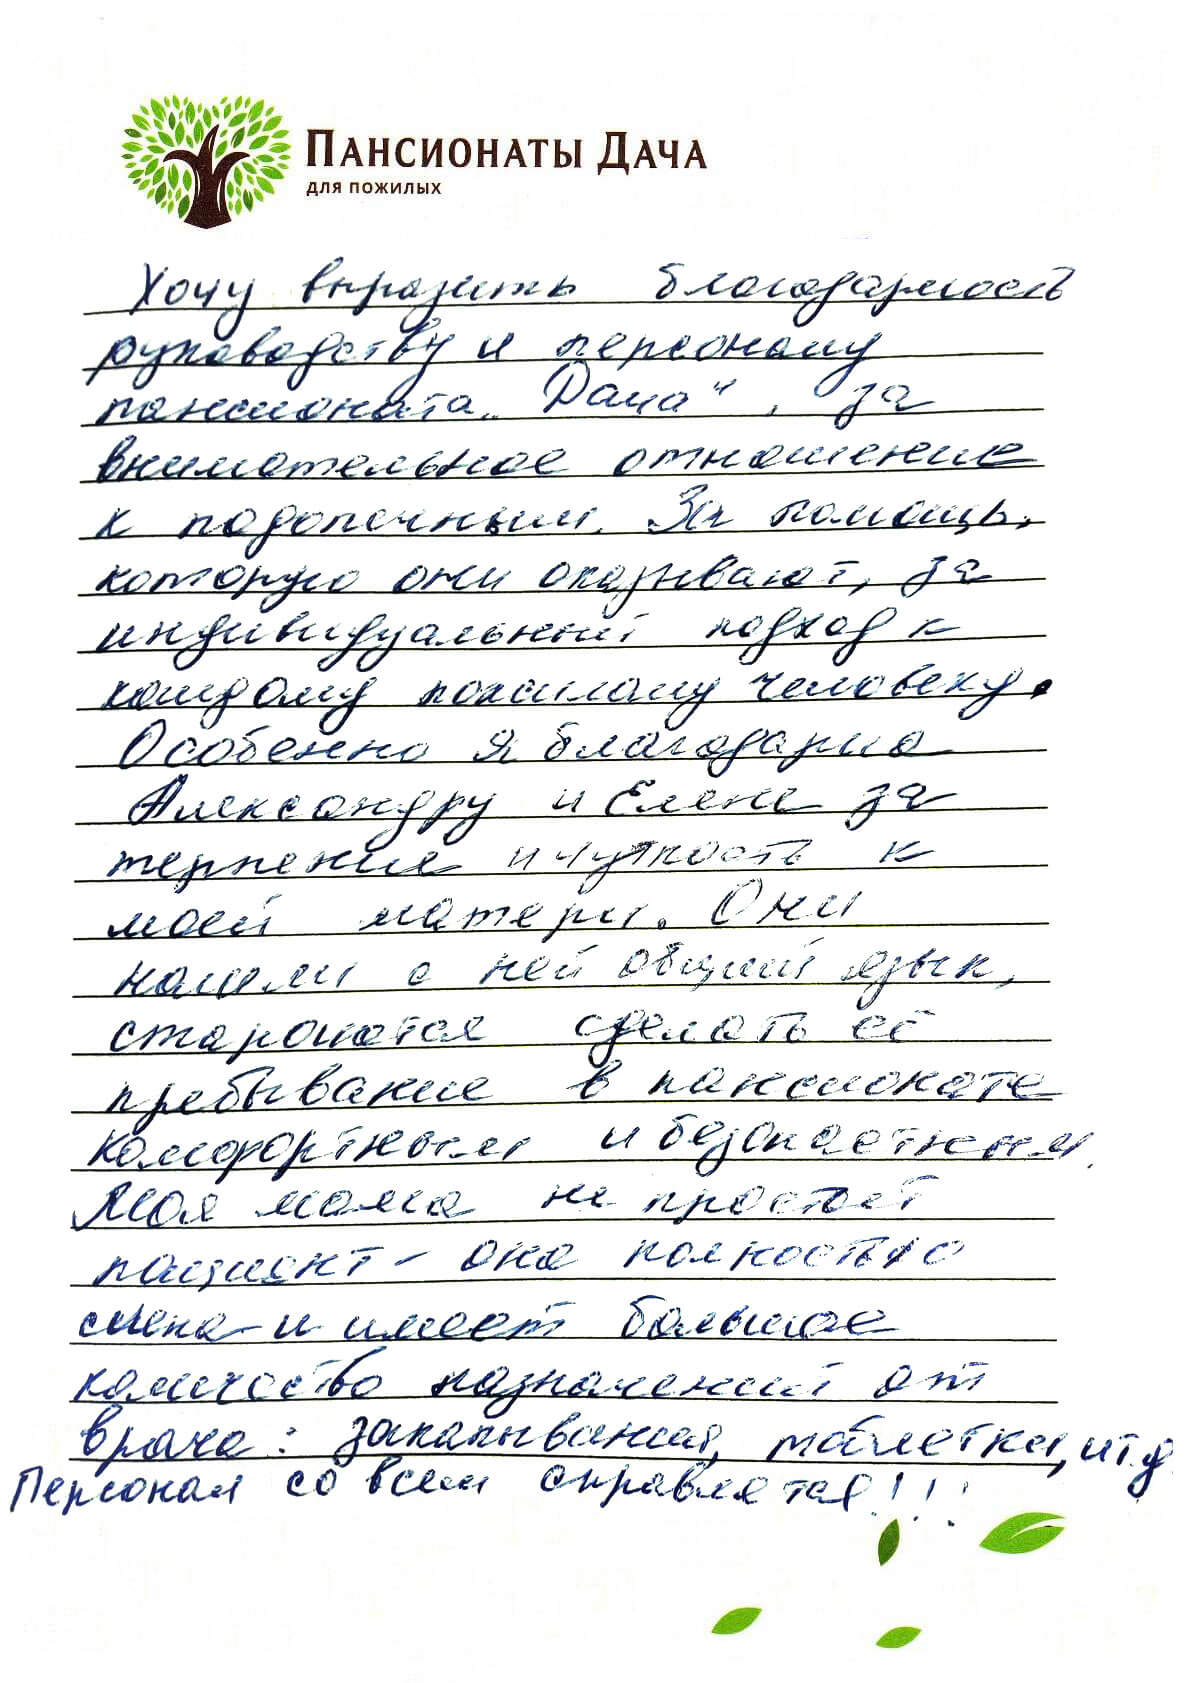 ПАНСИОНАТЫ ДАЧА
ДЛЯ ПОЖИЛЫХ
Хочу выразить благодарность
руководству и персоналу
пансионата „Дача", за
внимательное отношение
к подопечным. За помощь,
которую они оказывают, за
индивидуальный подход к
каждому пожилому человеку.
Особенно я благодарна
Александру и Елене за
терпение и чуткость к
моей матери. Они
нашли с ней общий язык,
стараются сделать её
пребывание в пансионате
комфортным и безопастным.
Моя мама не простой
пациент - она полностью
слепа и имеет большое
количество назначений от
врача: закапывания, таблетки, и т.д.
Персонал со всем справляется!!!